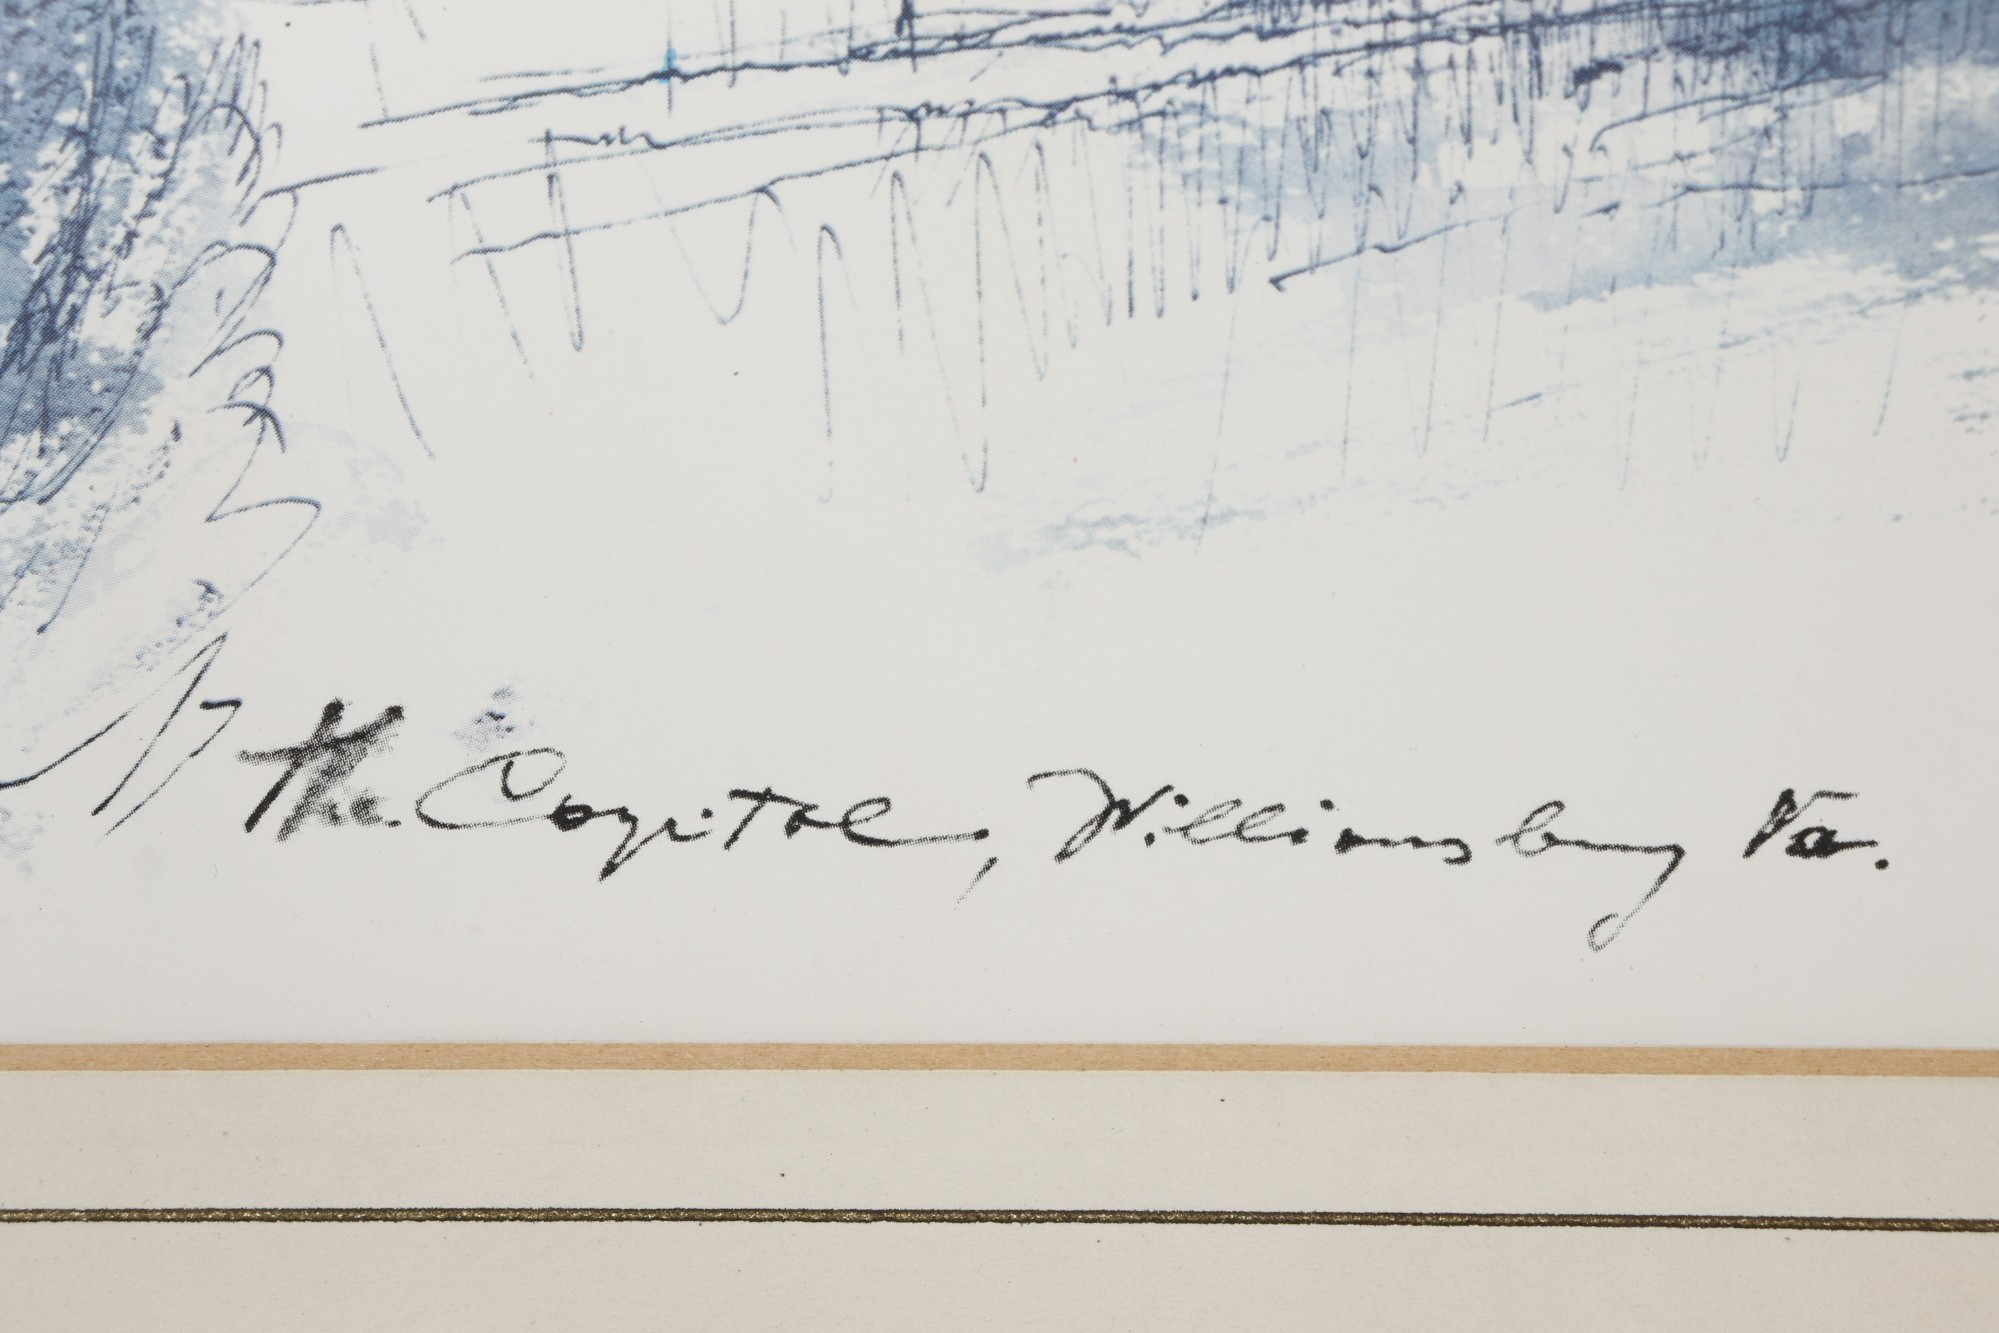 The Capitol, Williamsburg Va.